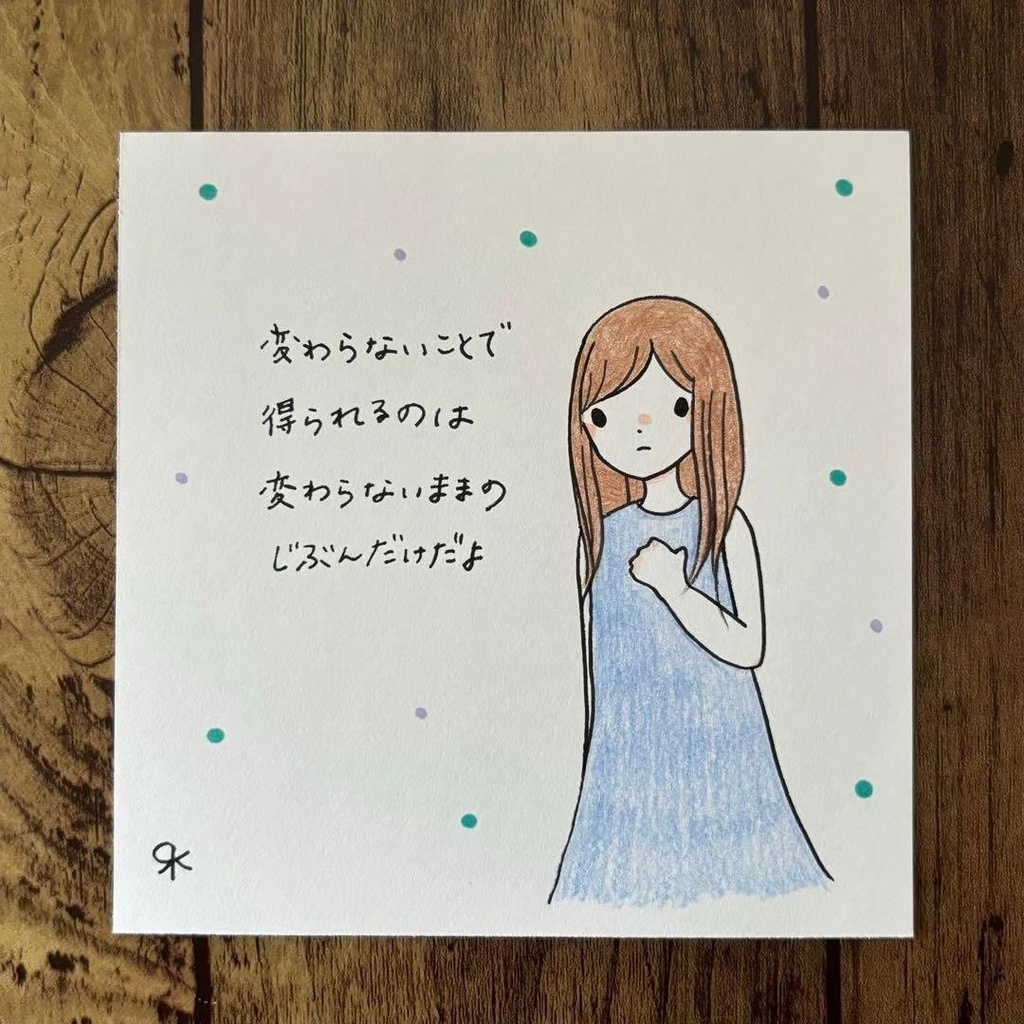 変わらないことで
得られるのは
変わらないままの
じぶんだけだよ